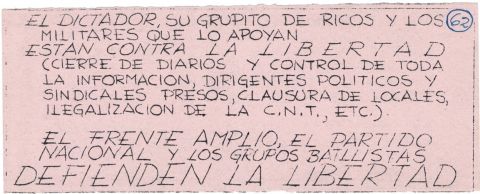 EL DICTADOR, SU GRUPITO DE RICOS Y LOS
62
MILITARES QUE LO APOYAN
ESTAN CONTRA LA LIBERTAD
(CIERRE DE DIARIOS Y CONTROL DE TODA
LA INFORMACION, DIRIGENTES POLITICOS Y
SINDICALES PRESOS, CLAUSURA DE LOCALES,
ILEGALIZACION DE LA C.N.T., ETC.).
EL FRENTE AMPLIO, EL PARTIDO
NACIONAL Y LOS GRUPOS BATLLISTAS
DEFIENDEN LA LIBERTAD